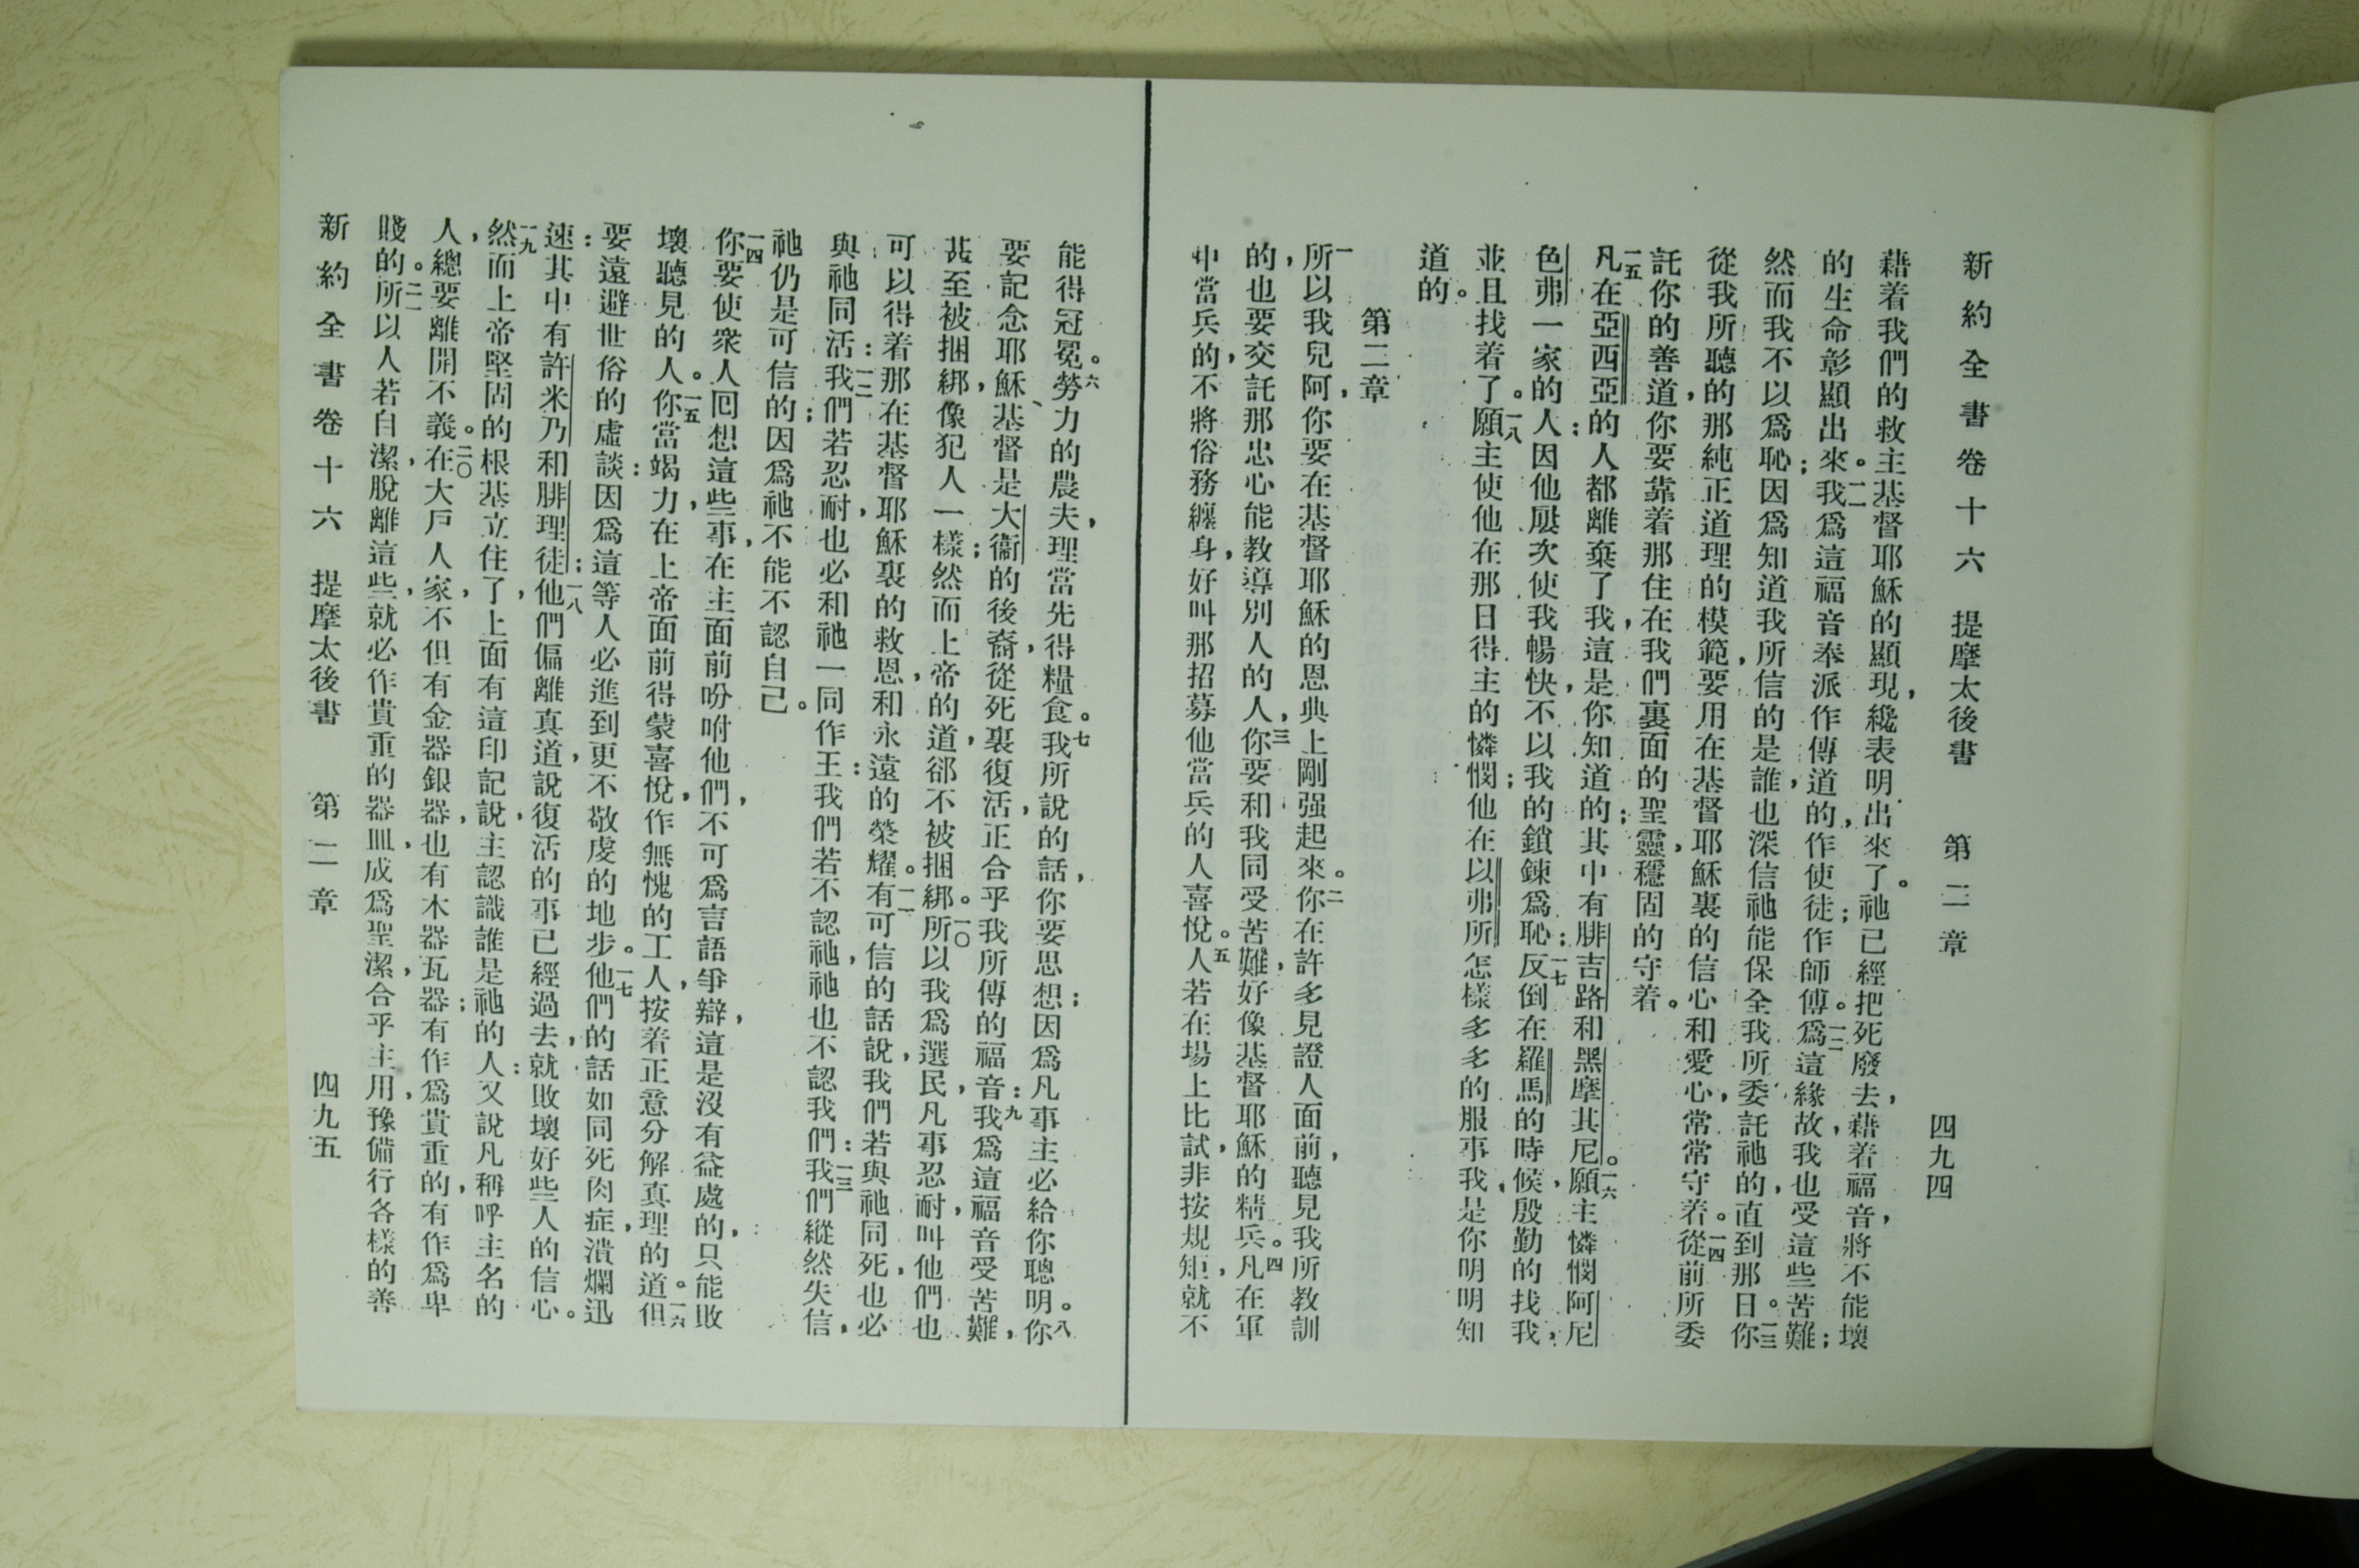 新約全書卷十六 提摩太後書 第二章 四九四
藉着我們的救主基督耶穌的顯現，纔表明出來了。祂已經把死廢去，藉着福音，將不能壞
的生命彰顯出來。一一我爲這福音奉派作傳道的，作使徒作師傅。一二爲這緣故，我也受這些苦難；
然而我不以爲恥；因爲知道我所信的是誰，也深信祂能保全我所委託祂的，直到那日。一三你
從我所聽的那純正道理的模範，要用在基督耶穌裏的信心和愛心，常常守着。一四從前所委
託你的善道，你要靠着那住在我們裏面的聖靈，穩固的守着。
一五凡在亞西亞的人都離棄了我，這是你知道的；其中有腓吉路和黑摩其尼。一六願主憐憫阿尼
色弗一家的人；因他屢次使我暢快，不以我的鎖鍊爲恥；一七反倒在羅馬的時候，殷勤的找我，
並且找着了。一八願主使他在那日得主的憐憫；他在以弗所怎樣多多的服事我，是你明明知
道的。
第二章
一所以我兒阿，你要在基督耶穌的恩典上剛强起來。二你在許多見證人面前，聽見我所教訓
的，也要交託那忠心能教導別人的人，三你要和我同受苦難，好像基督耶穌的精兵。四凡在軍
中當兵的，不將俗務纏身，好叫那招募他當兵的人喜悅。五人若在場上比試，非按規矩，就不
能得冠冕。六勞力的農夫，理當先得糧食。七我所說的話，你要思想；因爲凡事主必給你聰明。八你
要記念耶穌基督是大衞的後裔，從死裏復活，正合乎我所傳的福音：九我爲這福音受苦難，
甚至被捆綁，像犯人一樣；然而上帝的道，郤不被捆綁。一〇所以我爲選民，凡事忍耐，叫他們也
可以得着那在基督耶穌裏的救恩，和永遠的榮耀。一一有可信的話說，我們若與祂同死，也必
與祂同活：一二我們若忍耐，也必和祂一同作王：我們若不認祂，祂也不認我們：一三我們縱然失信，
祂仍是可信的；因爲祂不能不認自己。
一四你要使衆人回想這些事，在主面前吩咐他們，不可爲言語爭辯，這是沒有益處的，只能敗
壞聽見的人。一五你當竭力，在上帝面前得蒙喜悅，作無愧的工人，按着正意分解真理的道。一六但
要遠避世俗的虛談：因爲這等人必進到更不敬虔的地步。一七他們的話如同死肉症，潰爛迅
速：其中有許米乃和腓理徒；一八他們偏離真道，說復活的事已經過去，就敗壞好些人的信心。
一九然而上帝堅固的根基立住了，上面有這印記說，主認識誰是祂的人；又說凡稱呼主名的
人，總要離開不義。二〇在大戶人家，不但有金器銀器，也有木器瓦器；有作爲貴重的，有作爲卑
賤的。二一所以人若自潔，脫離這些，就必作貴重的器皿，成爲聖潔，合乎主用，豫備行各樣的善
新約全書卷十六 提摩太後書 第二章 四九五